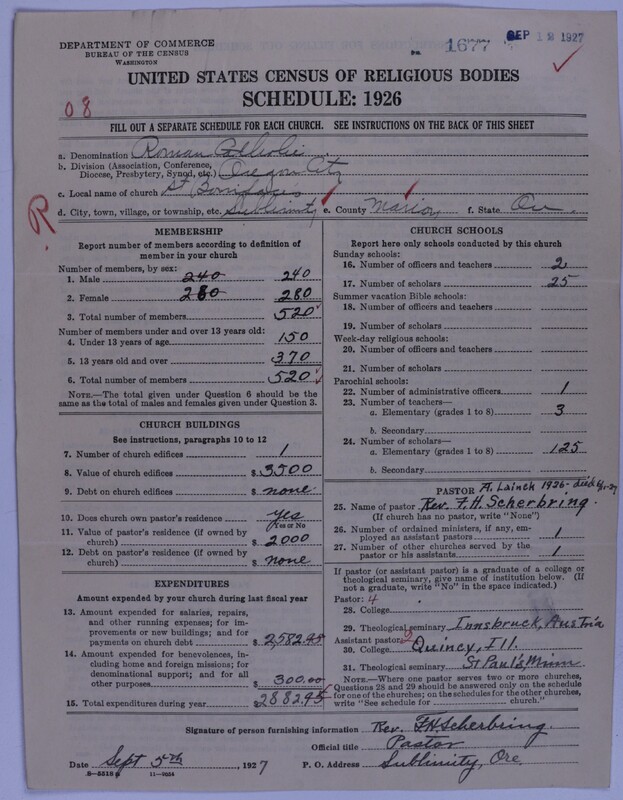 DEPARTMENT OF COMMERCE
BUREAU OF THE CENSUS
WASHINGTON
1677
SEP 12 1927
UNITED STATES CENSUS OF RELIGIOUS BODIES
SCHEDULE: 1926
08
FILL OUT A SEPARATE SCHEDULE FOR EACH CHURCH. SEE INSTRUCTIONS ON THE BACK OF THIS SHEET
a. Denomination Roman Catholic
b. Division (Association, Conference, Diocese, Presbytery, Synod, etc.) Oregon City
c. Local name of church St Boniface's
d. City, town, village, or township, etc. Sublimity e. County Marion f. State Ore
R
MEMBERSHIP
Report number of members according to definition of
member in your church
Number of members, by sex:
1. Male 240 240
2. Female 280 280
3. Total number of members 520
Number of members under and over 13 years old:
4. Under 13 years of age 150
5. 13 years old and over 370
6. Total number of members 520
NOTE.—The total given under Question 6 should be
the same as the total of males and females given under Question 3.
CHURCH BUILDINGS
See instructions, paragraphs 10 to 12
7. Number of church edifices 1
8. Value of church edifices $ 3500
9. Debt on church edifices $ none
10. Does church own pastor's residence yes
Yes or No
11. Value of pastor's residence (if owned by
church) $ 2000
12. Debt on pastor's residence (if owned by
church) $ none
EXPENDITURES
Amount expended by your church during last fiscal year
13. Amount expended for salaries, repairs,
and other running expenses; for im-
provements or new buildings; and for
payments on church debt $ 2582.95
14. Amount expended for benevolences,
including home and foreign missions; for
denominational support; and for all
other purposes $ 300.00
15. Total expenditures during year $ 2882.95
CHURCH SCHOOLS
Report here only schools conducted by this church
Sunday schools:
16. Number of officers and teachers 2
17. Number of scholars 25
Summer vacation Bible schools:
18. Number of officers and teachers
19. Number of scholars
Week-day religious schools:
20. Number of officers and teachers
21. Number of scholars
Parochial schools:
22. Number of administrative officers 1
23. Number of teachers—
a. Elementary (grades 1 to 8) 3
b. Secondary
24. Number of scholars—
a. Elementary (grades 1 to 8) 125
b. Secondary
PASTOR A. Lainck 1926- died
25. Name of pastor Rev. F. H. Scherbring.
(If church has no pastor, write "None")
26. Number of ordained ministers, if any, em-
ployed as assistant pastors 1
27. Number of other churches served by the
pastor or his assistants 1
If pastor (or assistant pastor) is a graduate of a college or
theological seminary, give name of institution below. (If
not a graduate, write "No" in the space indicated.)
Pastor: 4
28. College
29. Theological seminary Innsbruck, Austria
Assistant pastor:
30. College Quincy, Ill.
31. Theological seminary St Paul's Minn
NOTE.—Where one pastor serves two or more churches,
Questions 28 and 29 should be answered only on the schedule
for one of the churches; on the schedules for the other churches,
write "See schedule for church."
Signature of person furnishing information Rev. F.H. Scherbring.
Official title Pastor
Date Sept 5th, 1927 P. O. Address Sublimity, Ore.
8-5518 11-9554